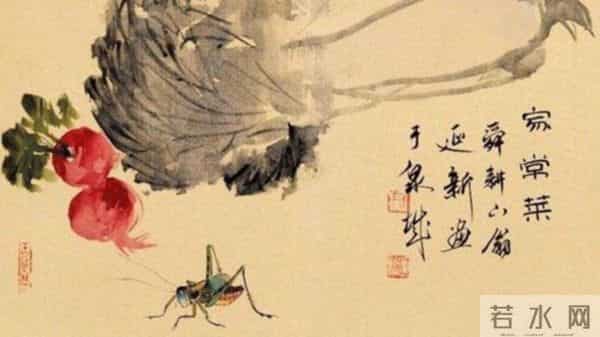 家常菜
舜耕山翁
延新画
于泉城
若水网